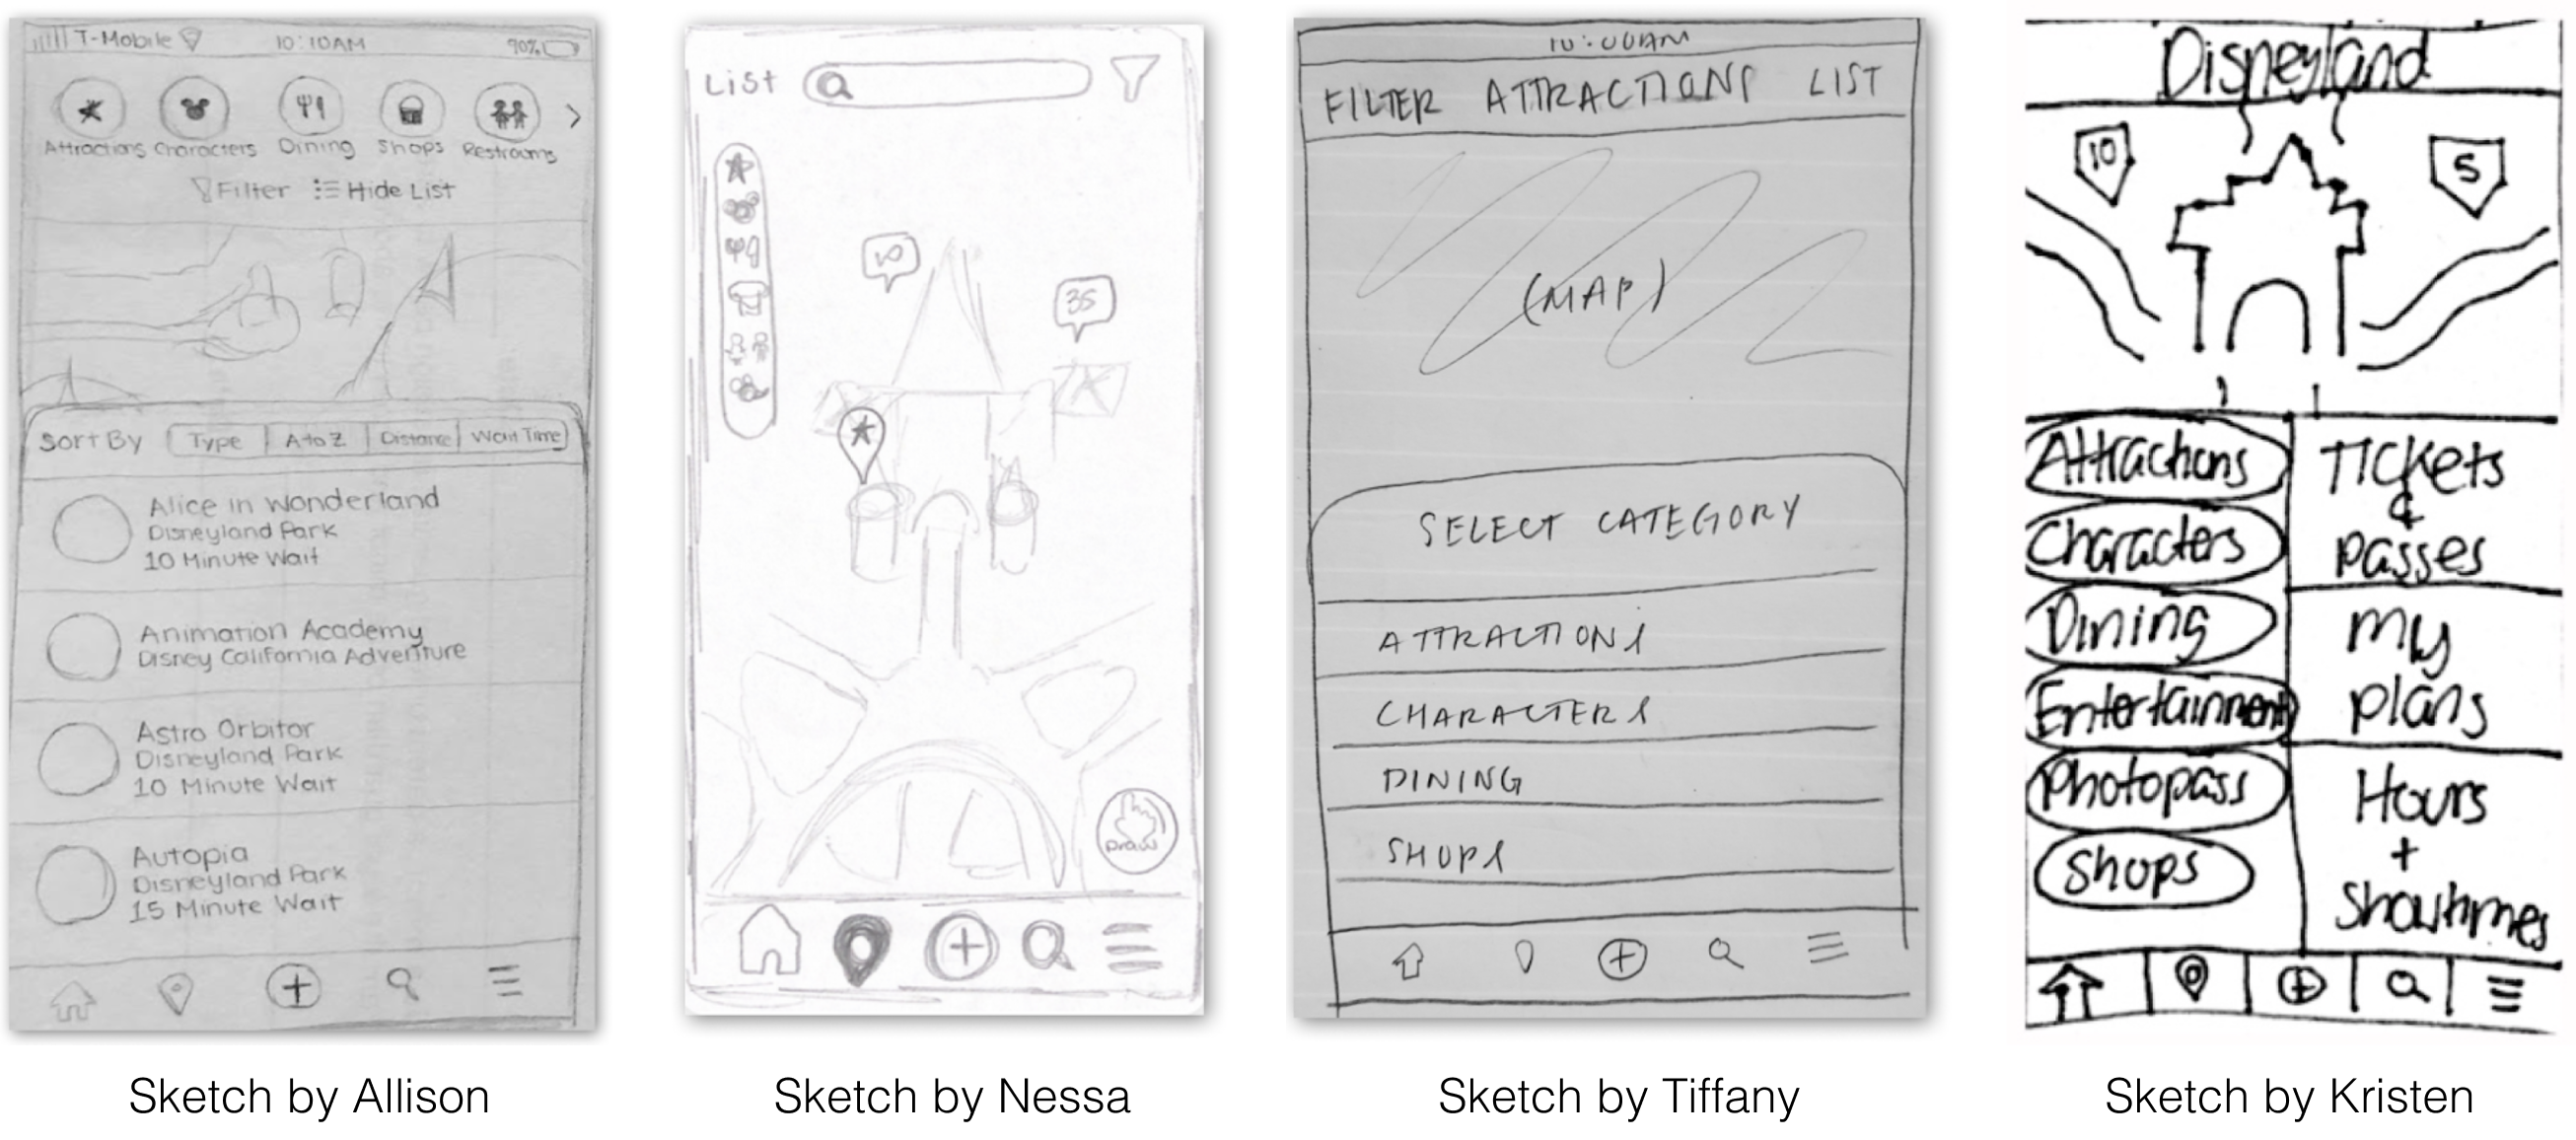 T-Mobile 10:10AM 90%
Attractions Characters Dining Shops Restrooms
Filter Hide List
Sort By Type A to Z Distance Wait Time
Alice in Wonderland
Disneyland Park
10 Minute Wait
Animation Academy
Disney California Adventure
Astro Orbitor
Disneyland Park
10 Minute Wait
Autopia
Disneyland Park
15 Minute Wait
Sketch by Allison
List
10
35
Draw
Sketch by Nessa
10:00AM
FILTER ATTRACTIONS LIST
(MAP)
SELECT CATEGORY
ATTRACTIONS
CHARACTERS
DINING
SHOPS
Sketch by Tiffany
Disneyland
10
5
Attractions
Characters
Dining
Entertainment
Photopass
Shops
Tickets
&
passes
my
plans
Hours
+
Showtimes
Sketch by Kristen